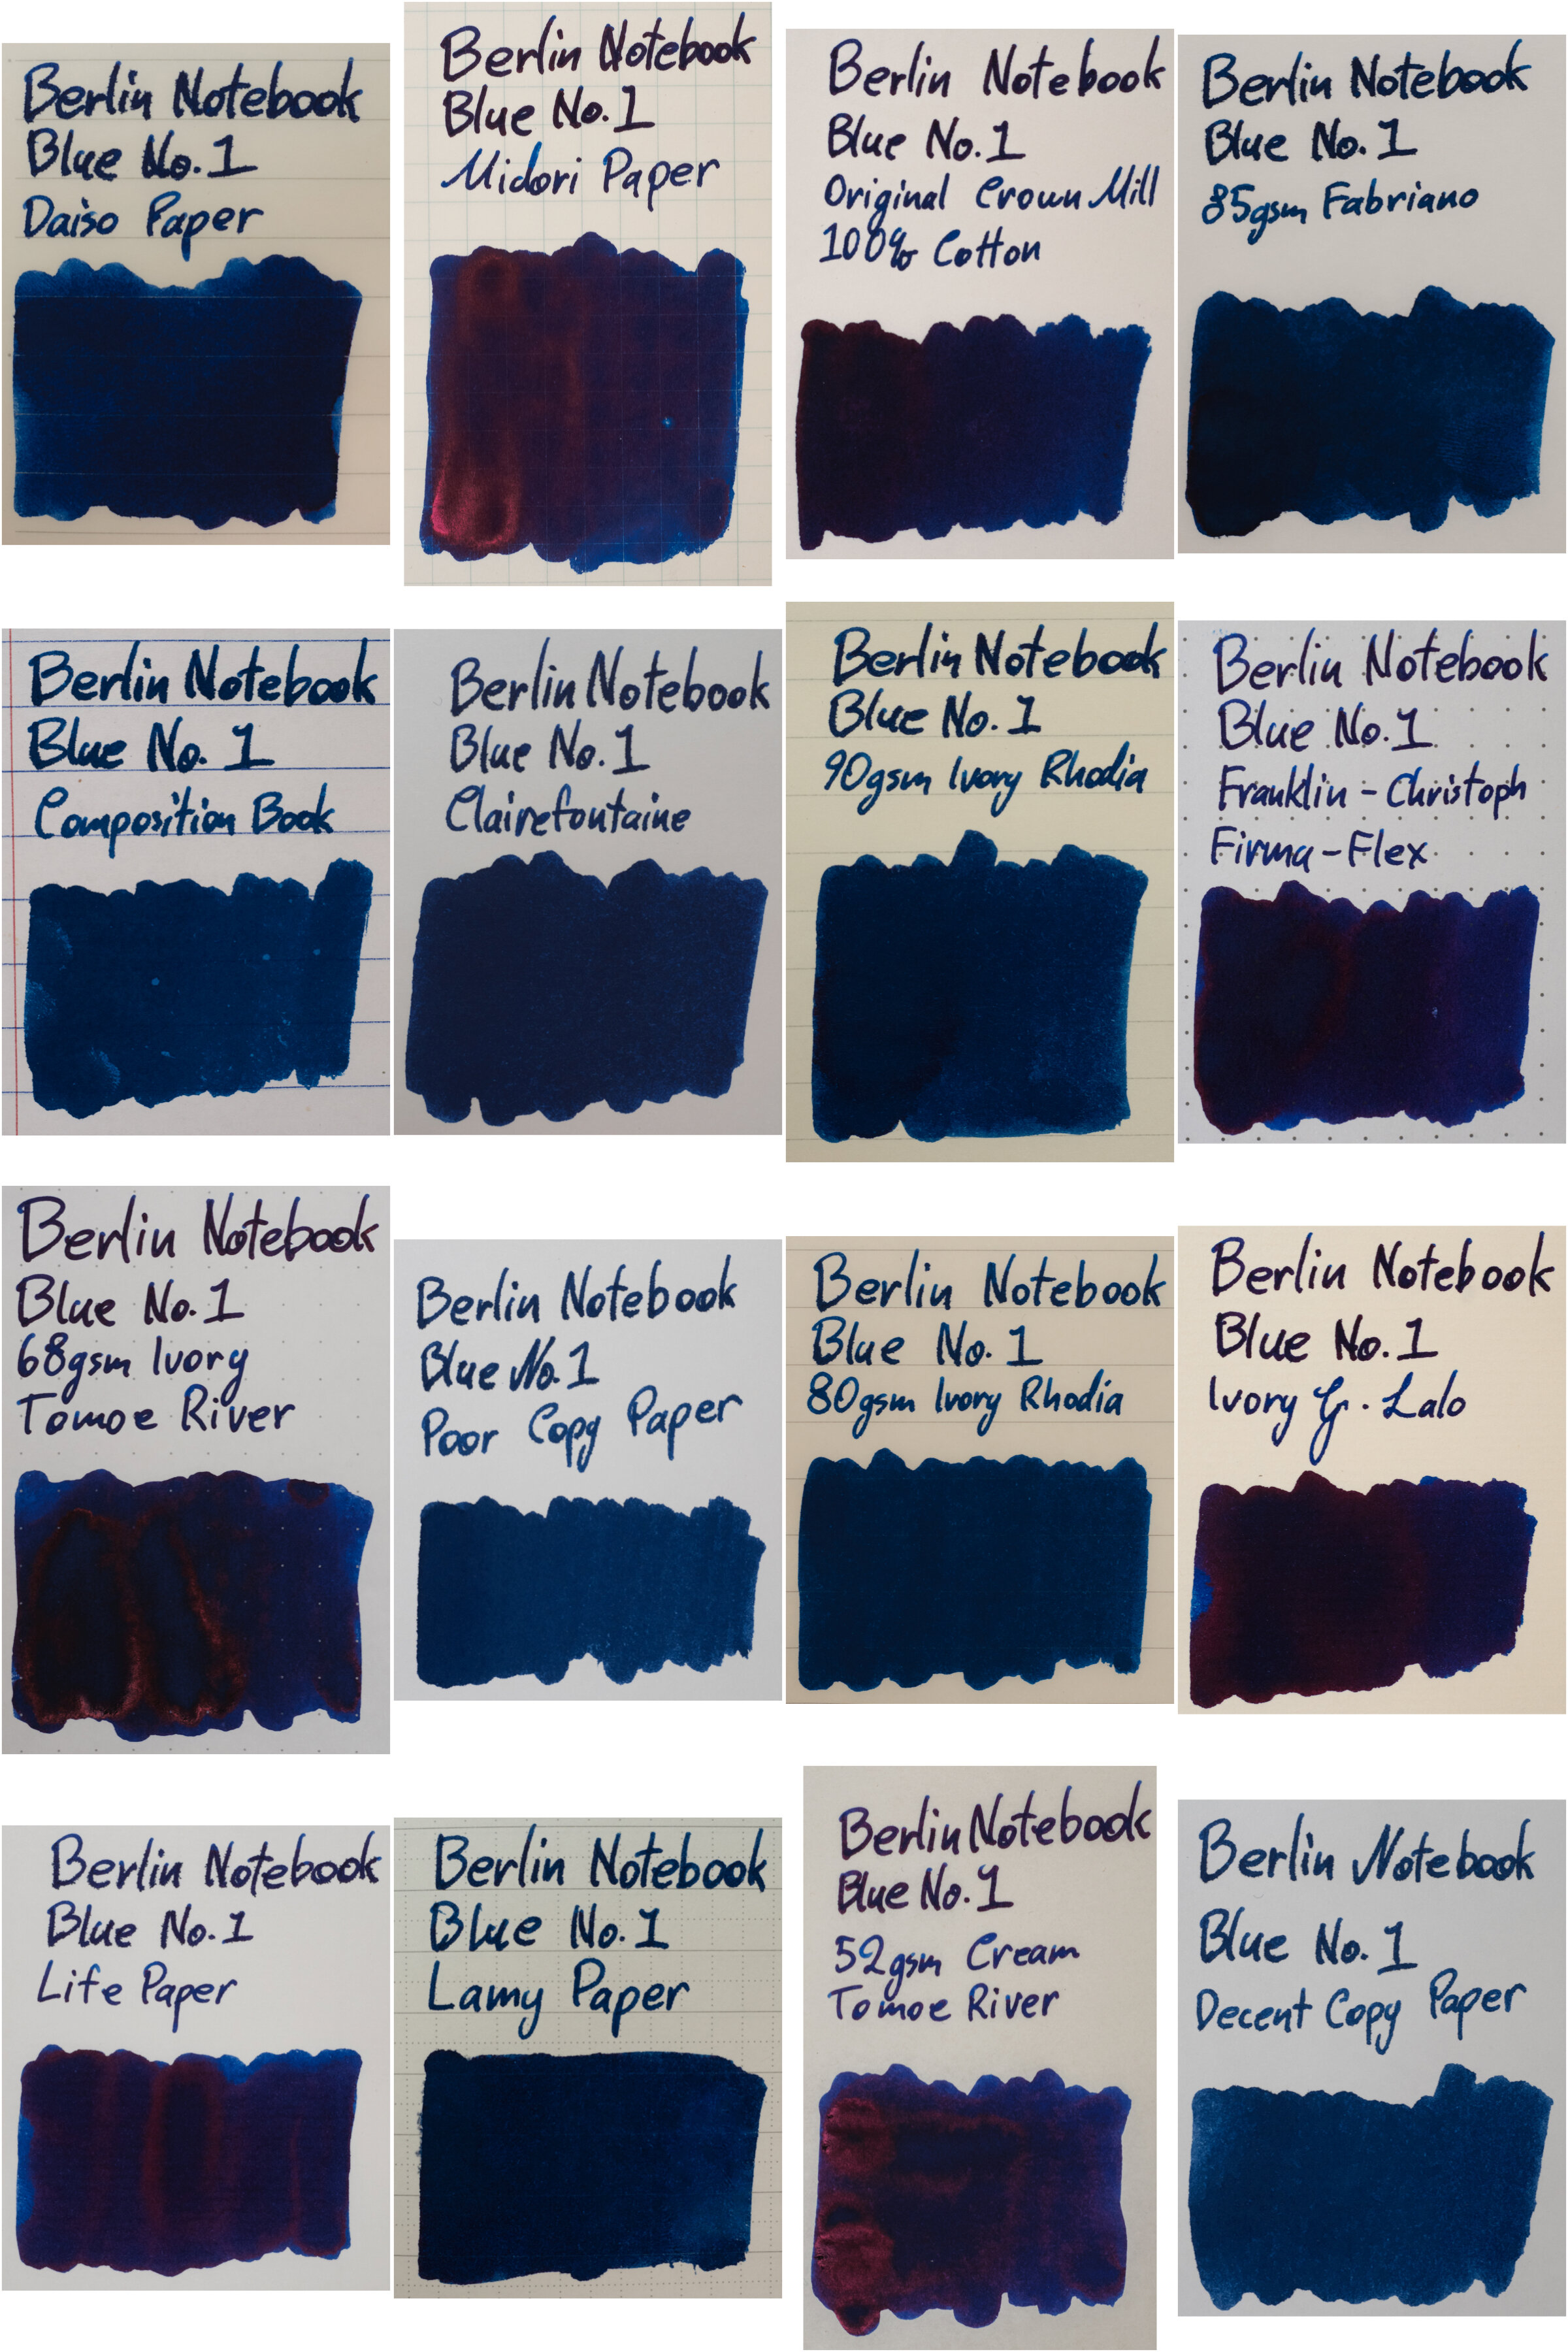 Berlin Notebook
Blue No.1
Daiso Paper
Berlin Notebook
Blue No.1
Midori Paper
Berlin Notebook
Blue No.1
Original Crown Mill
100% Cotton
Berlin Notebook
Blue No.1
85gsm Fabriano
Berlin Notebook
Blue No. 1
Composition Book
Berlin Notebook
Blue No.1
Clairefontaine
Berlin Notebook
Blue No. 1
90gsm Ivory Rhodia
Berlin Notebook
Blue No.1
Franklin-Christoph
Firma-Flex
Berlin Notebook
Blue No.1
68gsm Ivory
Tomoe River
Berlin Notebook
Blue No.1
Poor Copy Paper
Berlin Notebook
Blue No. 1
80gsm Ivory Rhodia
Berlin Notebook
Blue No.1
Ivory G. Lalo
Berlin Notebook
Blue No.1
Life Paper
Berlin Notebook
Blue No.1
Lamy Paper
Berlin Notebook
Blue No.1
52gsm Cream
Tomoe River
Berlin Notebook
Blue No.1
Decent Copy Paper